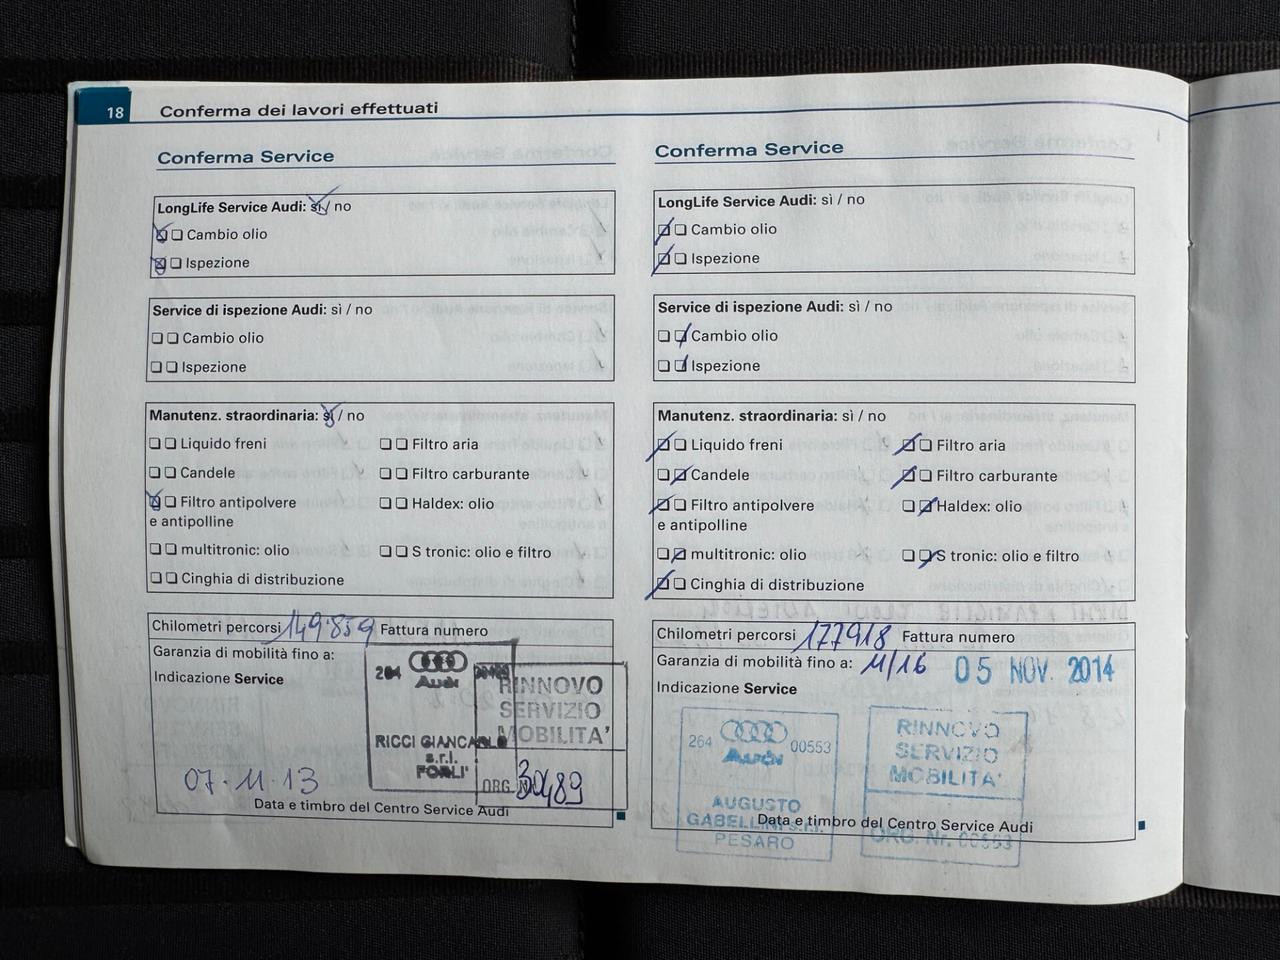 18 Conferma dei lavori effettuati
Conferma Service
LongLife Service Audi: sì / no
Cambio olio
Ispezione
Service di ispezione Audi: sì / no
Cambio olio
Ispezione
Manutenz. straordinaria: sì / no
Liquido freni
Filtro aria
Candele
Filtro carburante
Filtro antipolvere
e antipolline
Haldex: olio
multitronic: olio
S tronic: olio e filtro
Cinghia di distribuzione
Chilometri percorsi 149.859 Fattura numero
Garanzia di mobilità fino a:
Indicazione Service
264
Audi
RICCI GIANCARLO
s.r.l.
FORLI'
RINNOVO
SERVIZIO
MOBILITA'
ORG.
07.11.13
Data e timbro del Centro Service Audi
Conferma Service
LongLife Service Audi: sì / no
Cambio olio
Ispezione
Service di ispezione Audi: sì / no
Cambio olio
Ispezione
Manutenz. straordinaria: sì / no
Liquido freni
Filtro aria
Candele
Filtro carburante
Filtro antipolvere
e antipolline
Haldex: olio
multitronic: olio
S tronic: olio e filtro
Cinghia di distribuzione
Chilometri percorsi 177918 Fattura numero
Garanzia di mobilità fino a: 11/16 05 NOV. 2014
Indicazione Service
264 Audi 00553
AUGUSTO
GABELLINI s.r.l.
PESARO
RINNOVO
SERVIZIO
MOBILITA'
ORG. Nr. 00553
Data e timbro del Centro Service Audi